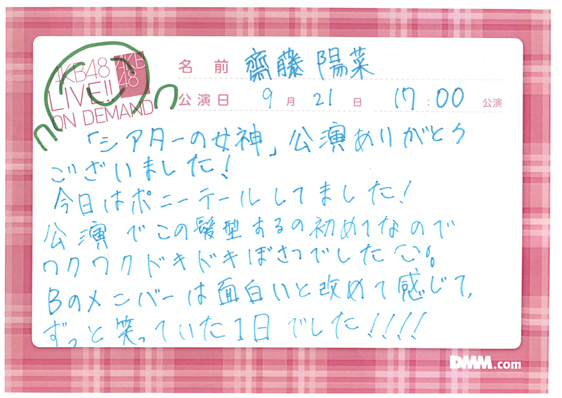 AKB48
LIVE!!
ON DEMAND
AKB
48
名前 齋藤 陽菜
公演日 9月 21日 17:00 公演
「シアターの女神」公演ありがとう
ございました!
今日はポニーテールしてました!
公演でこの髪型するの初めてなので
ワクワクドキドキぼさつでした
Bのメンバーは面白いと改めて感じて、
ずっと笑っていた1日でした!!!!
DMM.com